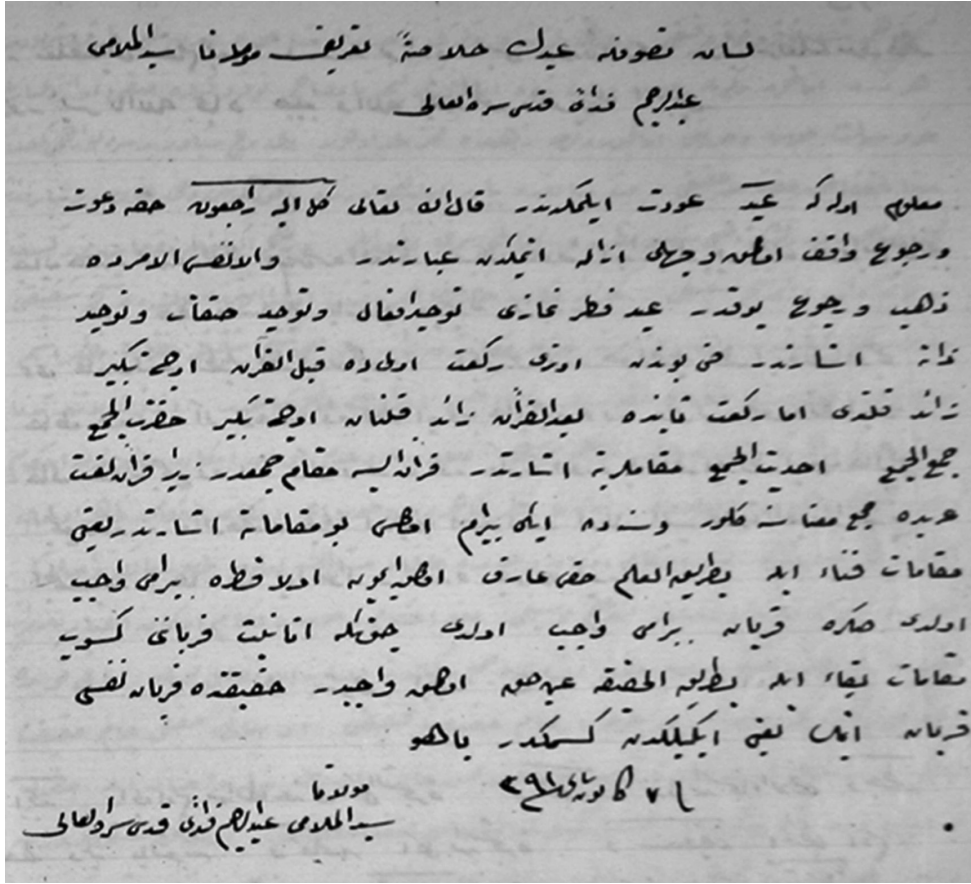 لسان تصوفده عيدك خلاصةً تعريفى مولانا سيد الملامى
عبدالرحيم فدائى قدس سره العالى
معلوم اوله كه عيد عودت ايلمكدر قال الله تعالى كل الينا راجعون حقه دعوت
ورجوع واقف اولمق وجهلى ازاله ايتمكدن عبارتدر والا نفس الامرده
ذهب ورجوع يوقدر عيد فطر نمازى توحيد افعال وتوحيد صفات وتوحيد
ذاته اشارتدر بوندن اوتری ركعت اولى ده قبل القرآن اوچ تكبير
زائد قلندى اما ركعت ثانيده بعد القرآن زائد قلنان اوچ تكبير حضرت الجمع
جمع الجمع احديت الجمع مقاملرينه اشارتدر قرآن ايسه مقام جمعدر زيرا قرآن لغت
عربده جمع معناسنه كلور وسنه ده ايكى بيرام اولمسى بو مقاماته اشارتدر يعنى
مقامات فناء ايله بطريق العلم حقى عارف اولديغيچون اولا فطره بيرامى واجب
اولدى صكره قربان بيرامى واجب اولدى چونكه انانيت قربانى كسوب
مقامات بقاء ايله بطريق الحقيقه عين حق اولمق واجبدر حقيقتده قربان نفسى
قربان ايتمك يعنى ايكيلكدن كسمكدر يا هو
كانون ثانى ٢٩١
مولانا
سيد الملامى عبدالرحيم فدائى قدس سره العالى